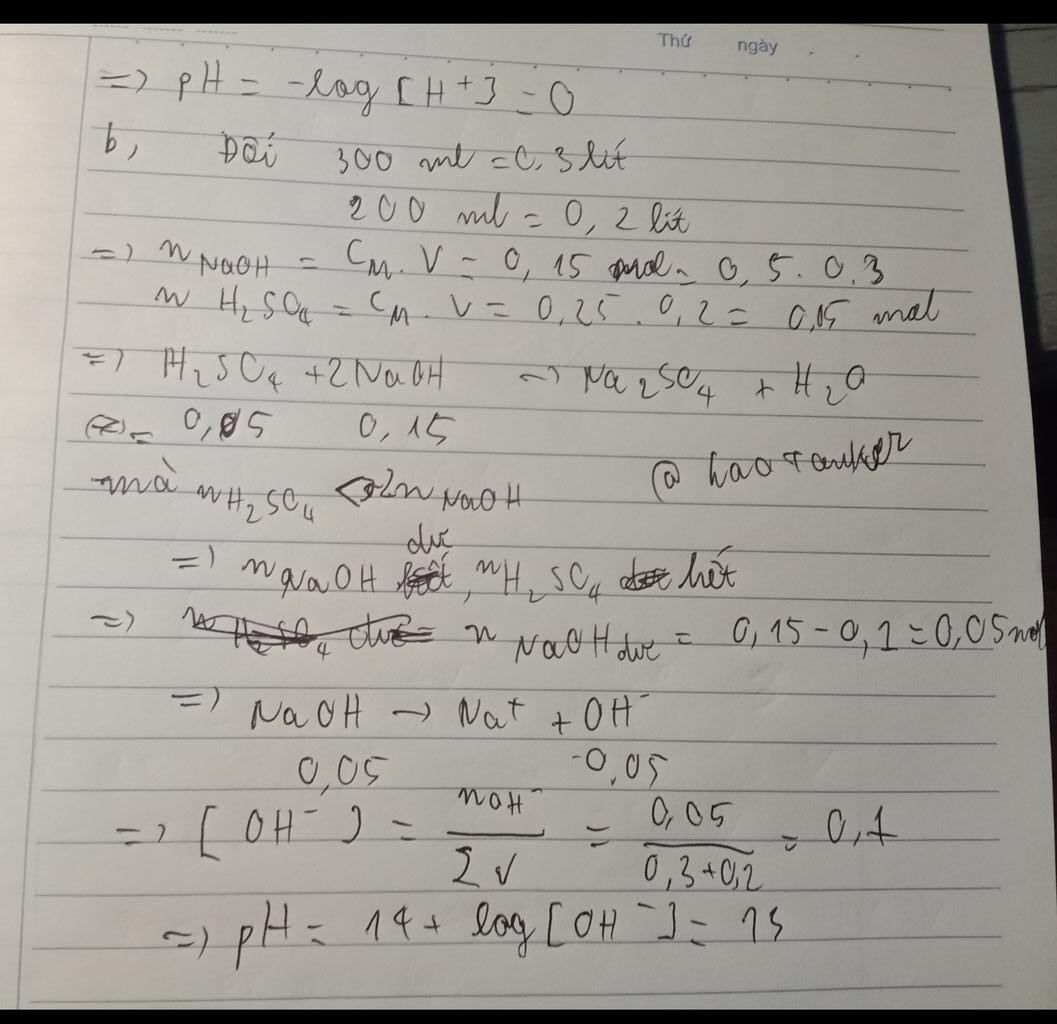 Thứ ngày
=> pH = -log [H+] = 0
b, Đổi 300 ml = 0,3 lít
200 ml = 0,2 lít
=> n NaOH = CM. V = 0,15 mol = 0,5. 0,3
n H2SO4 = CM. V = 0,25. 0,2 = 0,05 mol
=> H2SO4 + 2NaOH -> Na2SO4 + H2O
0,05 0,15
mà nH2SO4 < 2n NaOH
dư
=> n NaOH, nH2SO4 hết
@ haotanker
=> n NaOH dư = 0,15 - 0,1 = 0,05 mol
=> NaOH -> Na+ + OH-
0,05 0,05
=> [OH-] = nOH- / ΣV = 0,05 / 0,3+0,2 = 0,1
=> pH = 14 + log [OH-] = 13